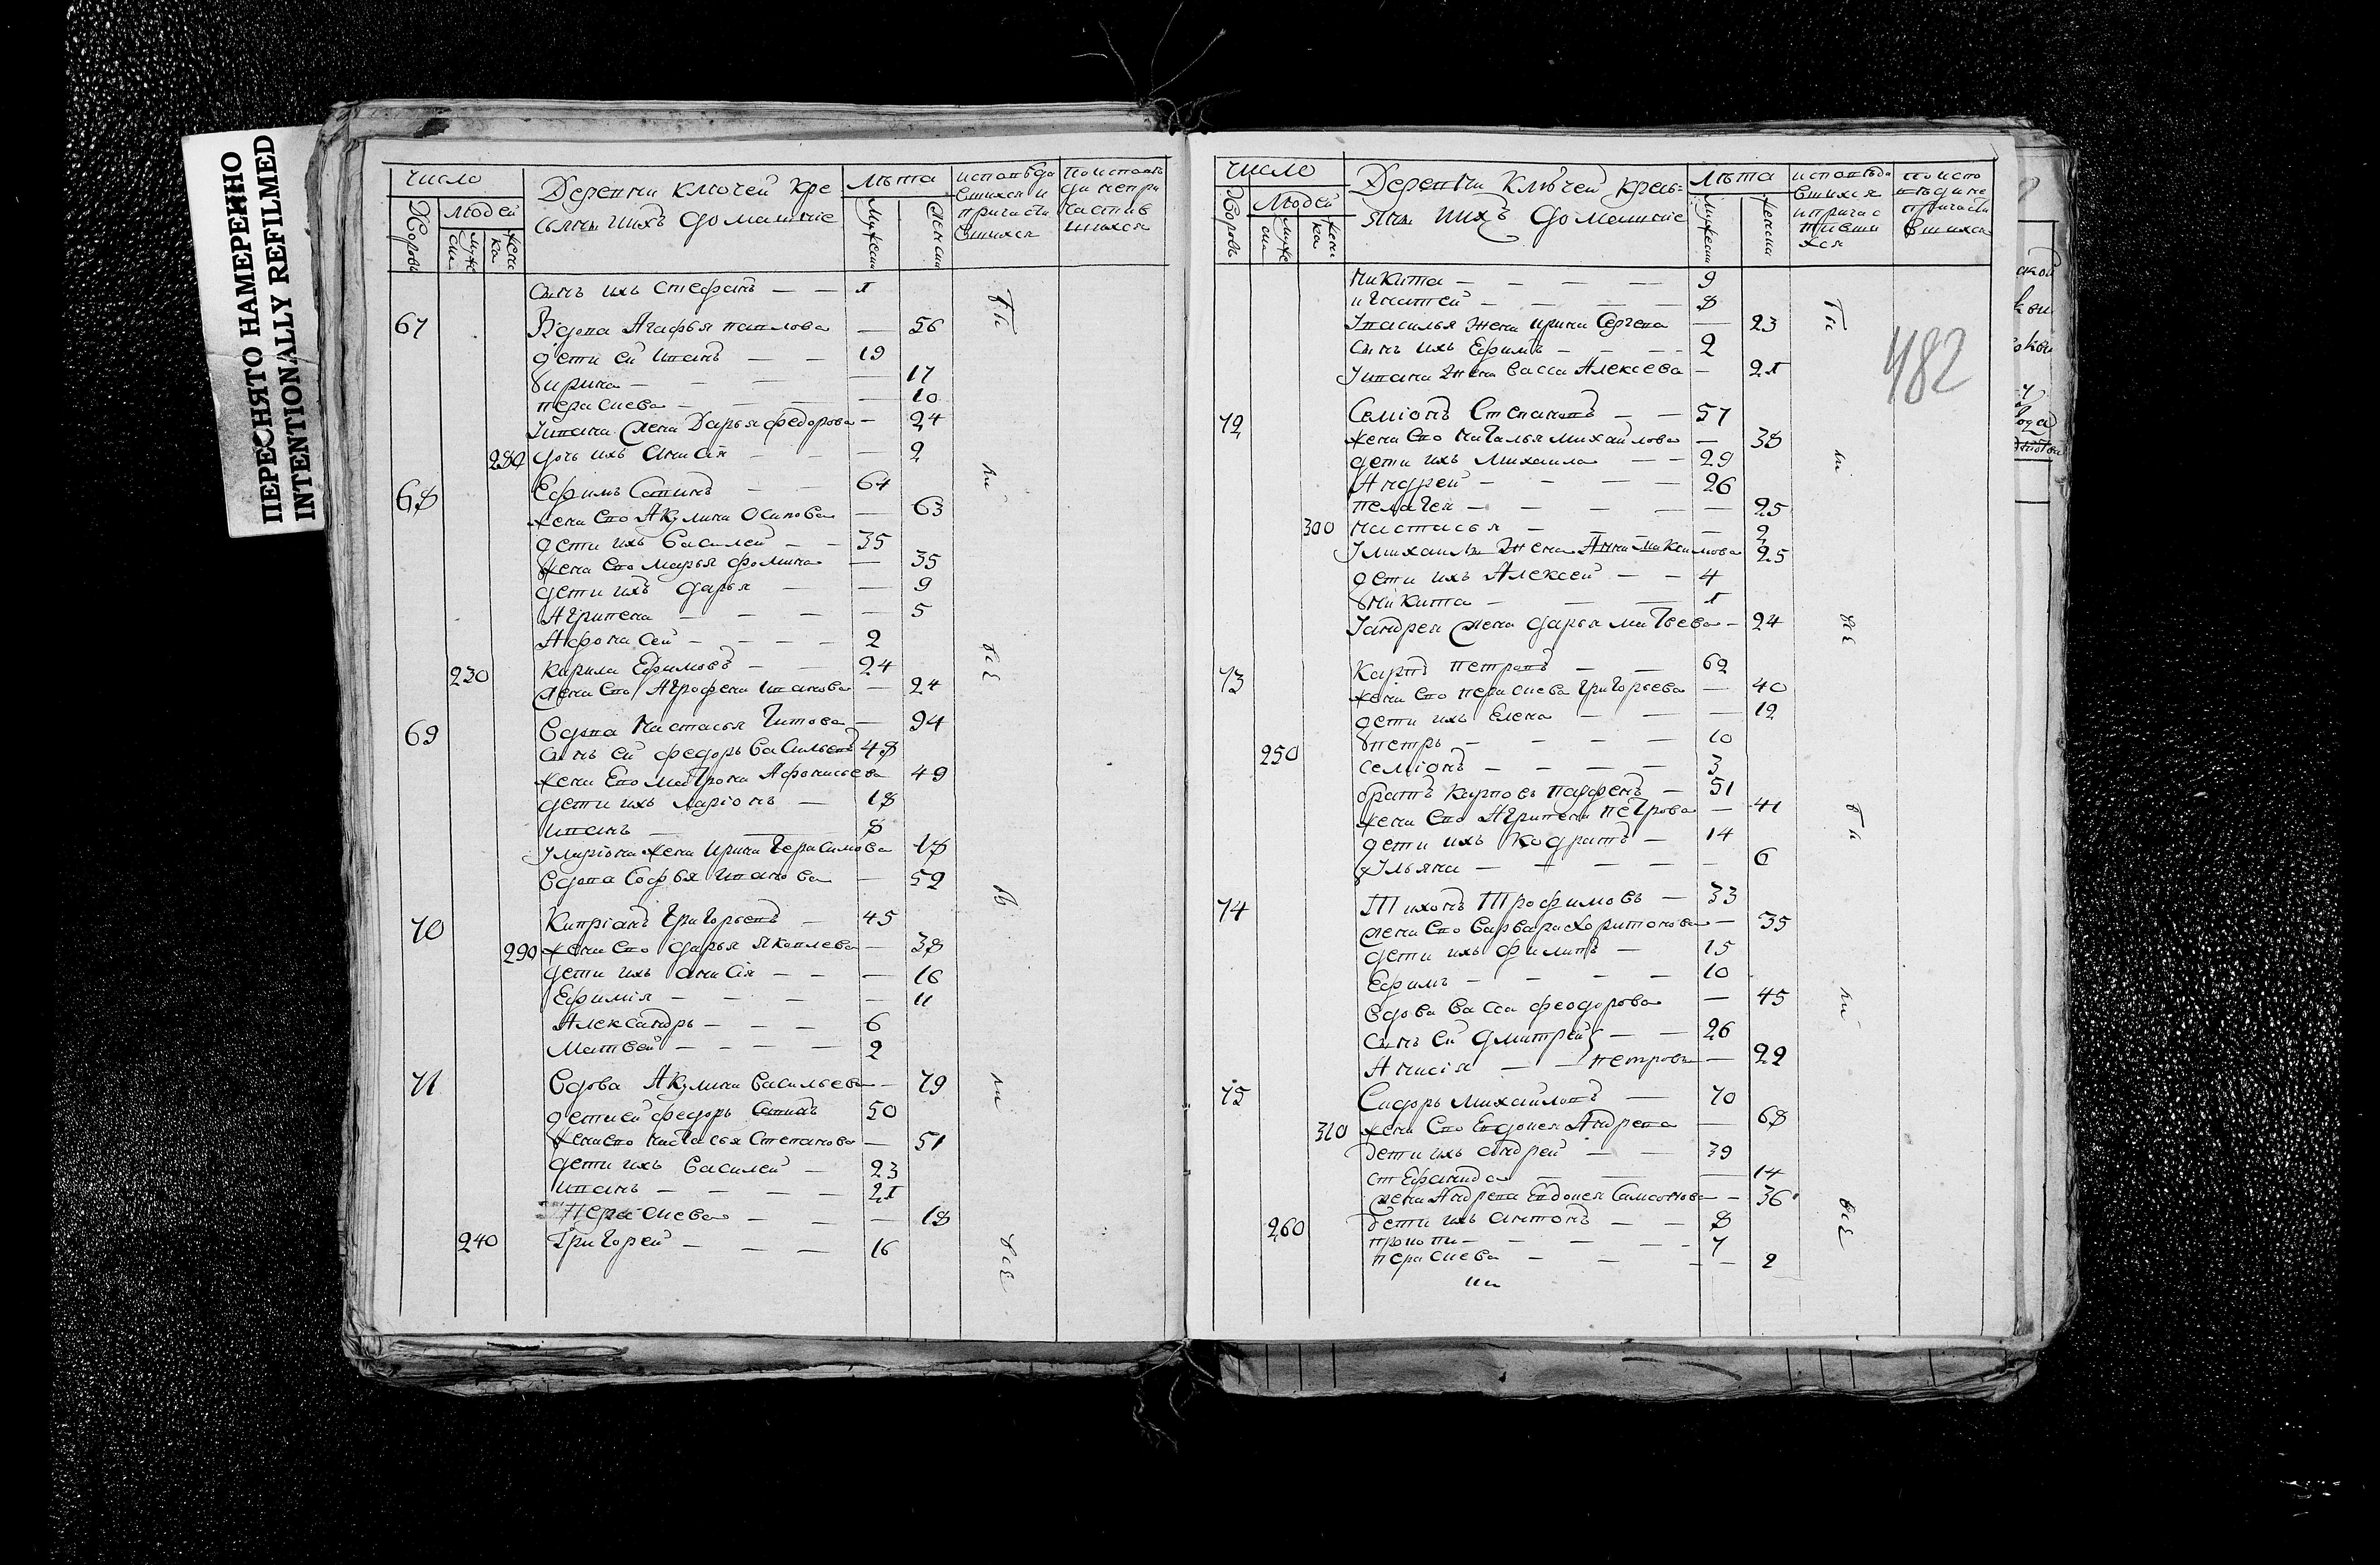 ПЕРЕСНЯТО НАМЕРЕННО
INTENTIONALLY REFILMED
число
Дворовъ
Людей
муже ска
женска
Деревни ключей кре
стьяны и ихъ домашніе
Лѣта
Мужеска
Женска
исповѣда
вшихся и
причасти
вшихся
по исповѣ
ди непри
частив
шихся
сынъ ихъ стефанъ — — 1
67 Вдова Агафья павлова — 56
дети ей иванъ — — 19
ирина — — — — 17
парасцева — — — 10
Ивана жена Дарья федорова — 24
280 дочь ихъ анисія — — — 2
68 Ефимъ — — 64
жена ево Акулина Осипова — 63
дети ихъ василей — — 35
жена ево марья фомина — 35
дети ихъ дарья — — 9
Агрипена — — — — 5
Афонасей — — — — 2
230 кирила Ефимовъ — — 24
жена ево Аграфена иванова — 24
69 вдова настасья титова — 94
сынъ ей федоръ васильевъ 48
жена ево матрона Афонасьева 49
дети ихъ ларіонъ — 18
иванъ — — 8
Уларіона жена ирина герасимова 18
вдова софья иванова — 52
70 Кипріанъ григорьевъ — 45
290 жена ево дарья яковлева — 38
дети ихъ анисія — — — 16
Ефимія — — — — 11
Александръ — — — 6
Матвей — — — — 2
71 вдова Акулина васильева — 79
дети ей федоръ 50
жена ево настасья степанова — 51
дети ихъ василей — 23
иванъ — — — — 21
парасцева — — — 18
240 Григорей — — — 16
число
Дворовъ
Людей
муже ска
женска
Деревни ключей кресть=
яны и ихъ домашніе
Лѣта
Мужеска
Женска
исповѣда
вшихся
и причас
тивши
хся
по испо
вѣди не
причасти
вшихся
482
никита — — — — 9
игнатей — — — — 8
Увасилья жена ирина сергева — 23
сынъ ихъ Ефимъ — — — 2
Уивана жена васса Алексева — 21
72 Семіонъ Степановъ — — 57
жена ево наталья михайлова — 38
дети ихъ михаила — — 29
Андрей — — — — 26
пелагея — — — — — 25
300 настасья — — — — 2
Умихаилы жена Анна максимова 25
дети ихъ Алексей — — 4
никита — — — 1
Уандрея жена дарья матвева — 24
73 Карпъ петровъ — — 62
жена ево парасцева григорьева — 40
дети ихъ елена — — — 12
петръ — — — — 10
250 семіонъ — — — — 3
братъ карповъ парфенъ — 51
жена ево Агрипена петрова — 41
дети ихъ кодратъ — 14
Ульяна — — — — — 6
74 Тихонъ Трофимовъ — 33
жена ево варвара харитонова — 35
дети ихъ филипъ — 15
Ефимъ — — — — 10
вдова васса феодорова — 45
сынъ ей дмитрей — — 26
Анисія — — петрова — 22
75 Сидоръ михайловъ — 70
310 жена ево Евдокея Андрева — 68
дети ихъ андрей — — 39
стефанида — — — 14
жена Андрева Евдокея самсонова — 36
260 дети ихъ антонъ — — 8
прокопи — — — — 7
парасцева — — — — 2